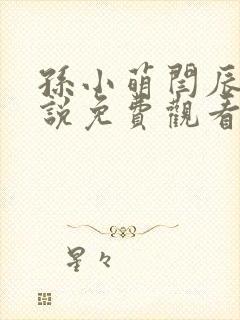 孫小萌閆辰
說免費觀看
星々